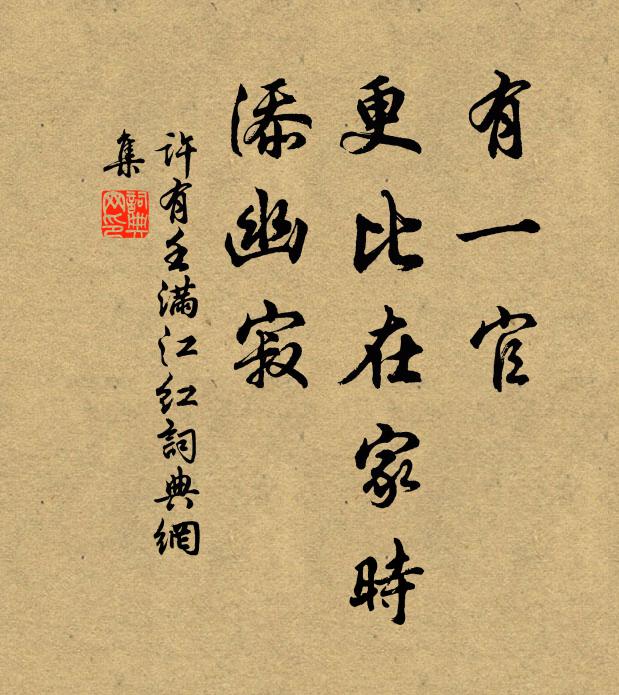 有一官
更比在家時
添幽寂
許有壬滿江紅詞典網
集
詞典網印